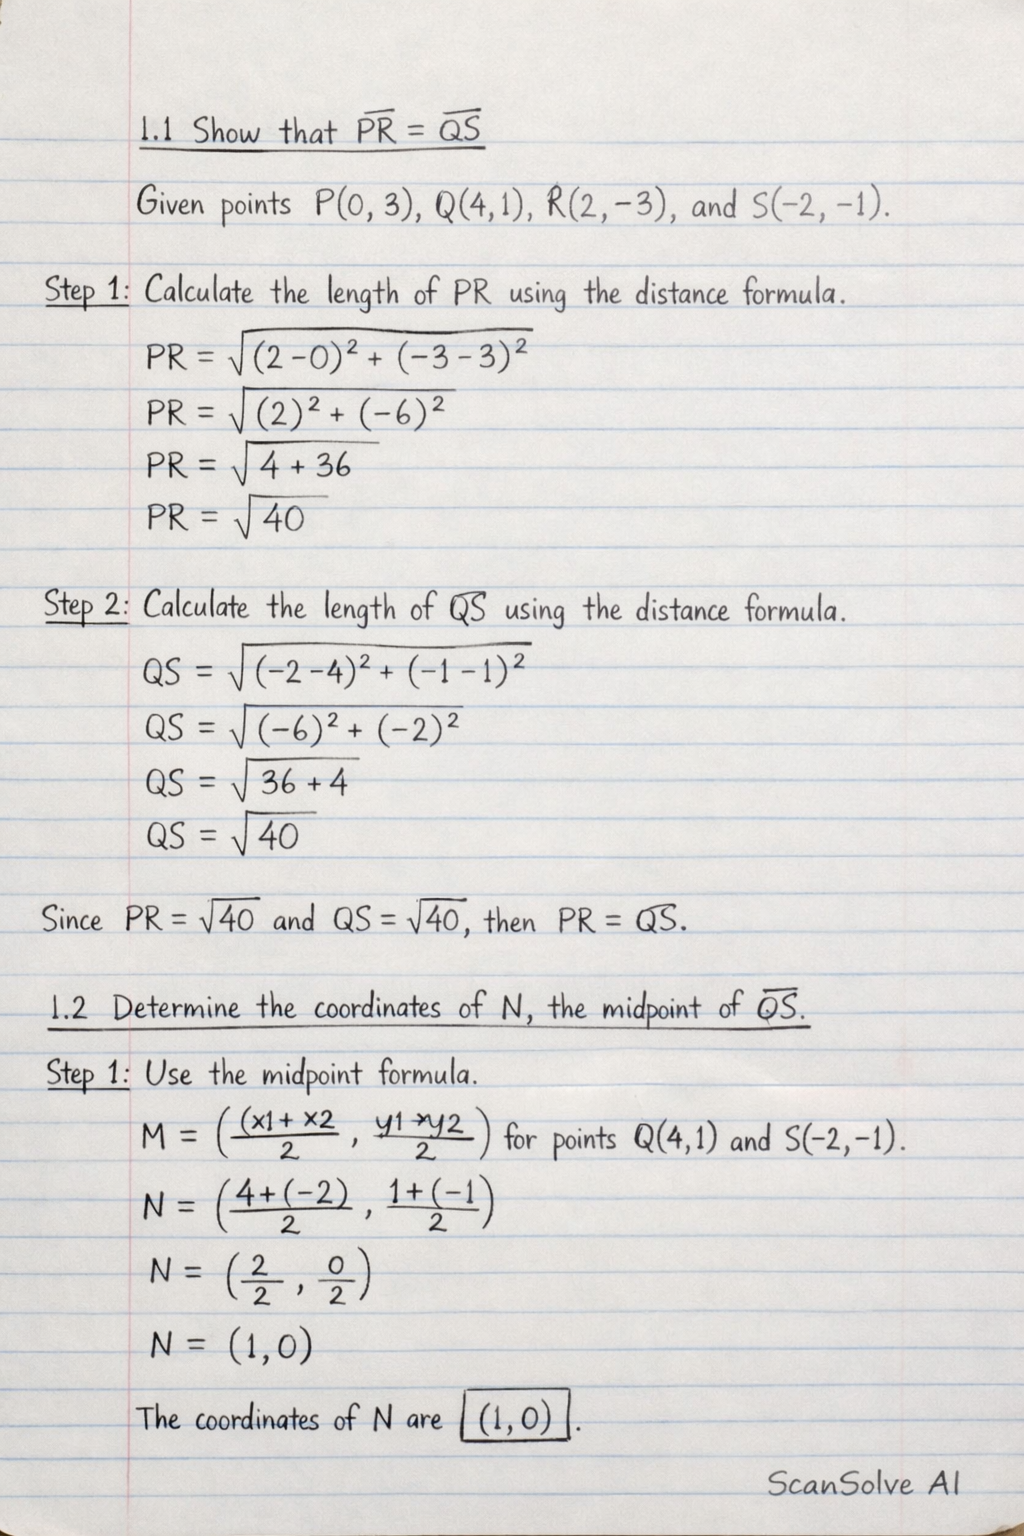 1.1 Show that P̅R̅ = Q̅S̅
Given points P(0, 3), Q(4,1), R(2, -3), and S(-2, -1).
Step 1: Calculate the length of PR using the distance formula.
PR = √(2-0)² + (-3-3)²
PR = √(2)² + (-6)²
PR = √4 + 36
PR = √40
Step 2: Calculate the length of Q̅S̅ using the distance formula.
QS = √(-2-4)² + (-1-1)²
QS = √(-6)² + (-2)²
QS = √36 + 4
QS = √40
Since PR = √40 and QS = √40, then PR = Q̅S̅.
1.2 Determine the coordinates of N, the midpoint of Q̅S̅.
Step 1: Use the midpoint formula.
M = ((x1 + x2 / 2, y1 + y2 / 2) for points Q(4,1) and S(-2,-1).
N = (4+(-2) / 2, 1+(-1 / 2)
N = (2/2, 0/2)
N = (1,0)
The coordinates of N are (1,0).
ScanSolve AI